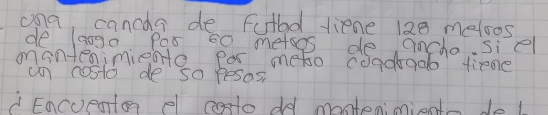 una cancda de Futbol tiene 128 metros
de largo Por 60 metros de ancho. si el
mantenimiento Por metro cuadrado tiene
un costo de 50 Pesos
¿ Encuentra el costo del mantenimiento de